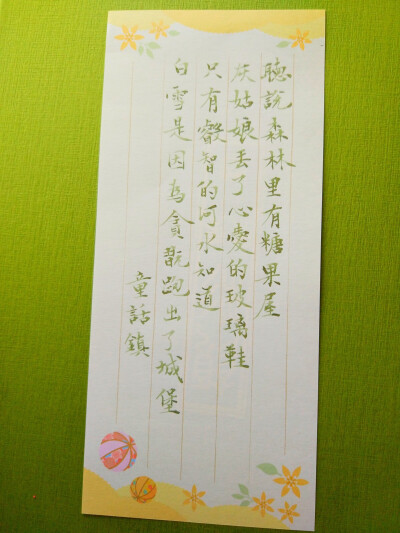 聽說森林里有糖果屋
灰姑娘丟了心愛的玻璃鞋
只有叡智的河水知道
白雪是因為貪翫跑出了城堡
童話鎮